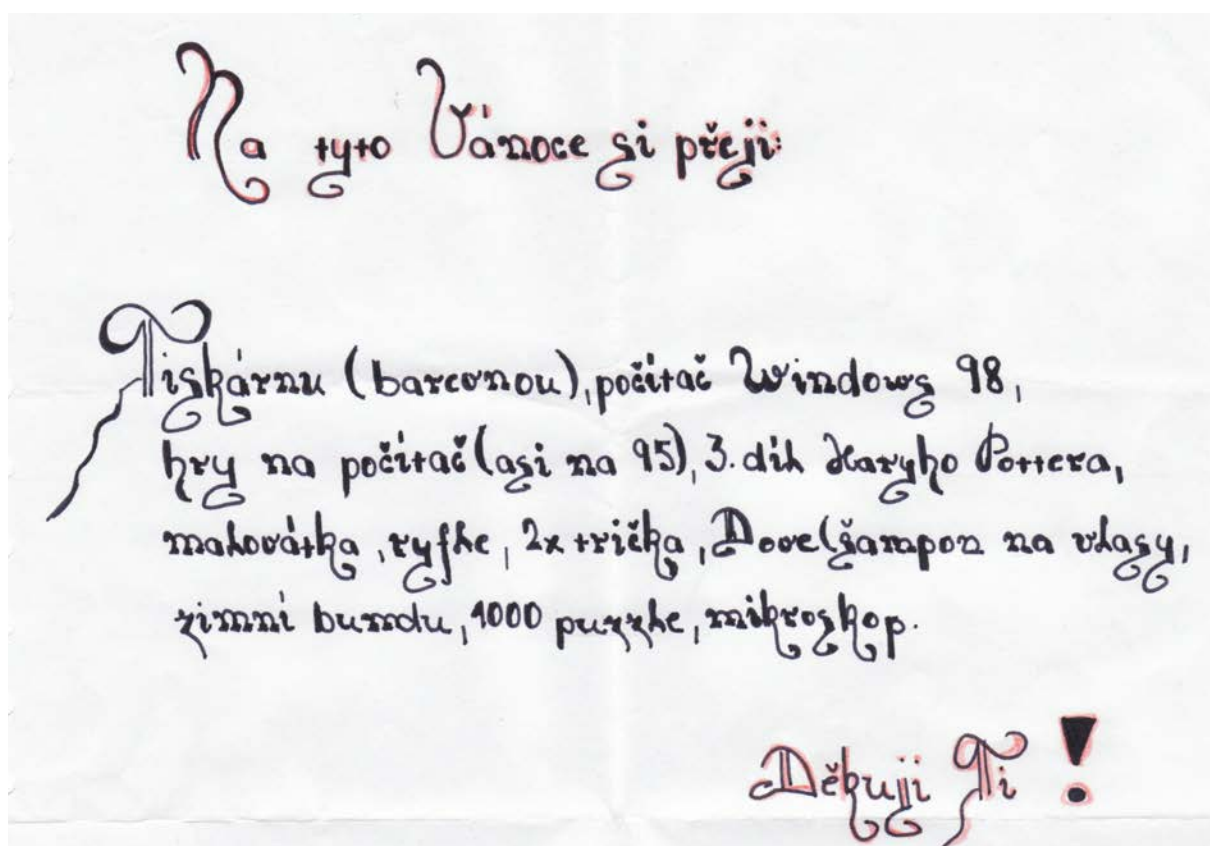 Na tyto Vánoce si přeji:
Tiskárnu (barevnou), počítač Windows 98,
hry na počítač (asi na 95), 3. díl Haryho Pottera,
malovátka, ryfle, 2x trička, Dove (šampon na vlasy,
zimní bundu, 1000 puzzle, mikroskop.
Děkuji Ti!